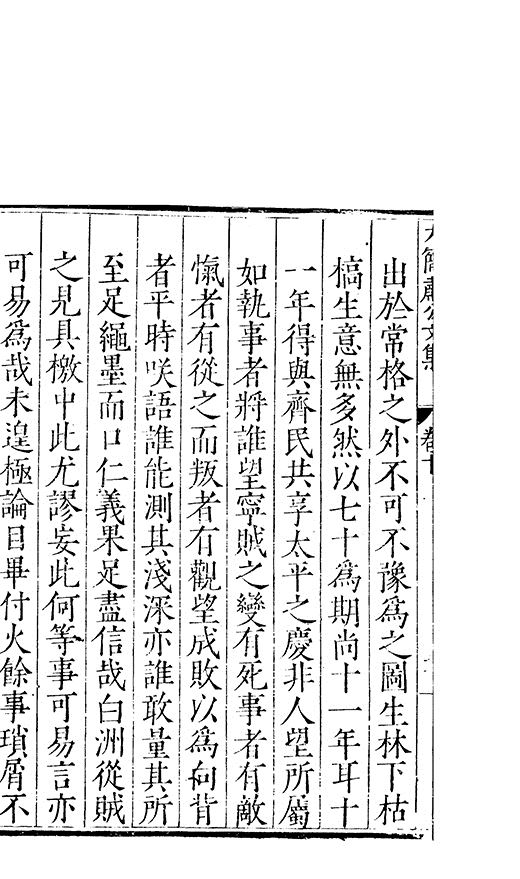 出於常格之外不可不豫爲之圖生林下枯
槁生意無多然以七十爲期尚十一年耳十
一年得與齊民共享太平之慶非人望所屬
如執事者將誰望寧賊之變有死事者有敵
愾者有從之而叛者有觀望成敗以爲向背
者平時咲語誰能測其淺深亦誰敢量其所
至足繩墨而口仁義果足盡信哉白洲從賊
之見具檄中此尤謬妄此何等事可易言亦
可易爲哉未遑極論目畢付火餘事瑣屑不